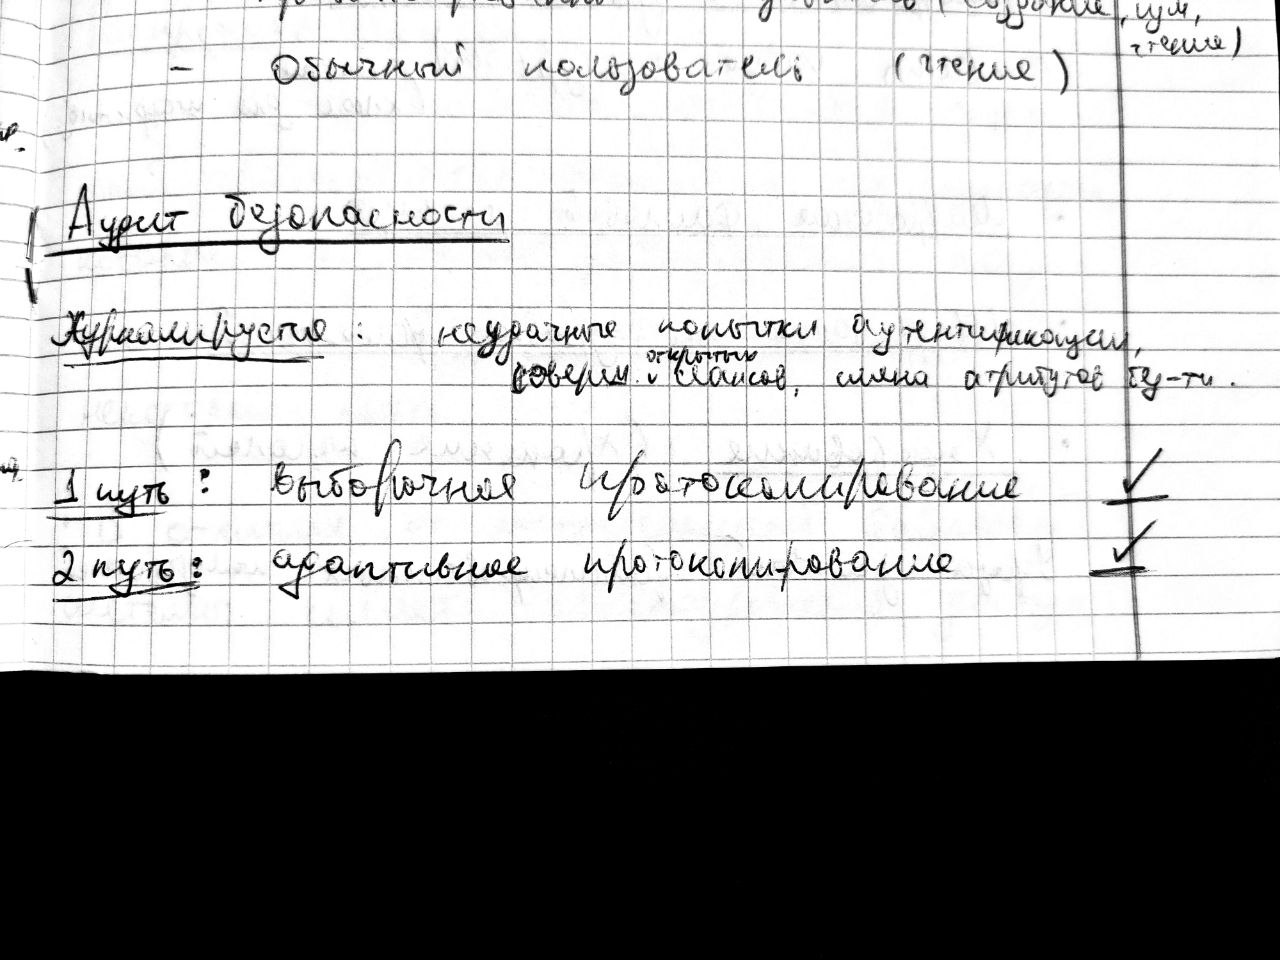 (создание, изм,
чтение)
- Обычный пользователь (чтение)
Аудит безопасности
Журналируется: неудачные попытки аутентификации,
открытых
соверш. и сеансов, смена атрибутов без-ти.
1 путь: выборочное протоколирование ✓
2 путь: адаптивное протоколирование ✓